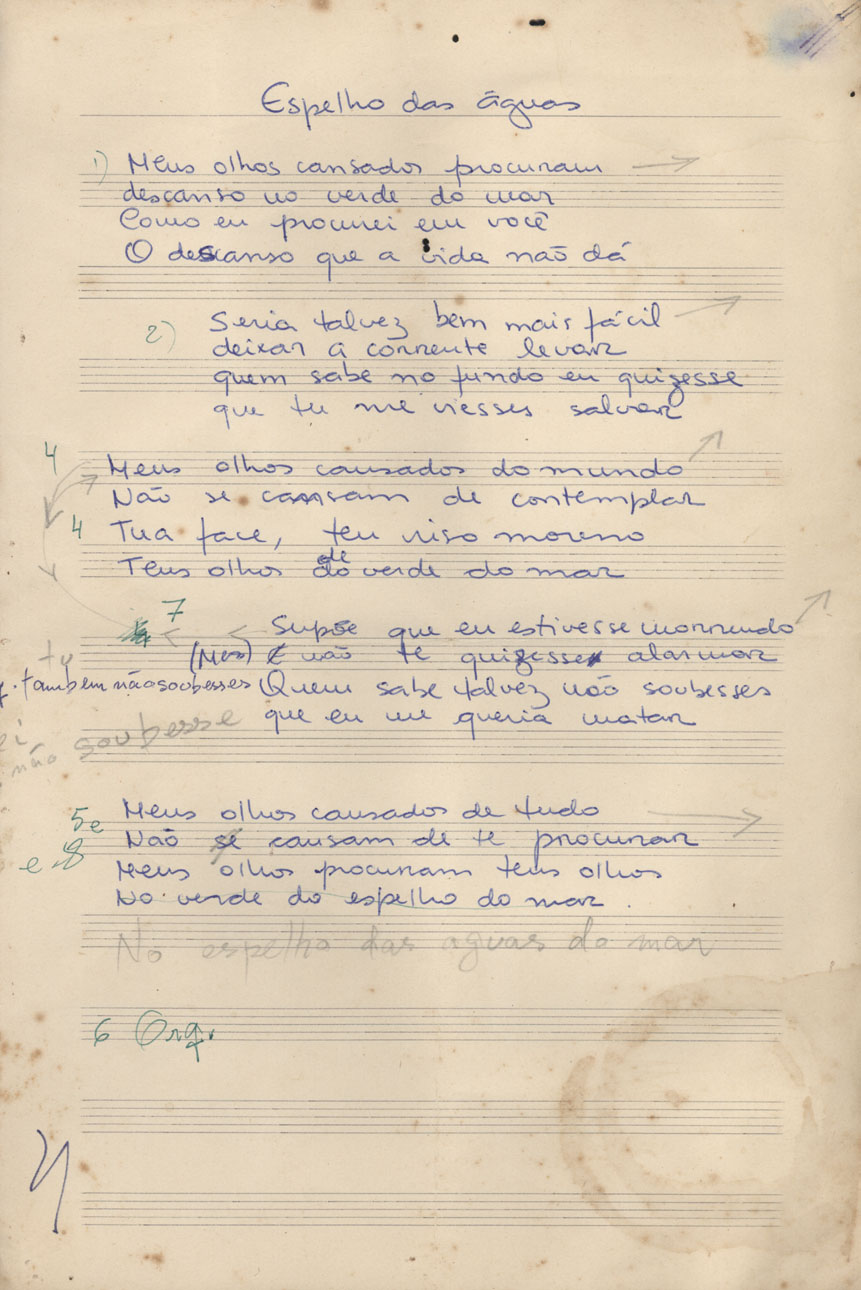 Espelho das águas
1) Meus olhos cansados procuram
descanso no verde do mar
Como eu procurei em você
O descanso que a vida não dá
2) Seria talvez bem mais fácil
deixar a corrente levar
quem sabe no fundo eu quizesse
que tu me viesses salvar
4 Meus olhos cansados do mundo
Não se cansam de contemplar
4 Tua face, teu riso moreno
Teus olhos do verde do mar
de
7 Supõe que eu estivesse morrendo
(Mas) E não te quizesse alarmar
tu
também não soubesses Quem sabe talvez não soubesses
que eu me queria matar
não soubesse
5 e Meus olhos cansados de tudo
Não se cansam de te procurar
e 8 Meus olhos procuram teus olhos
No verde do espelho do mar.
No espelho das aguas do mar
6 Orq.